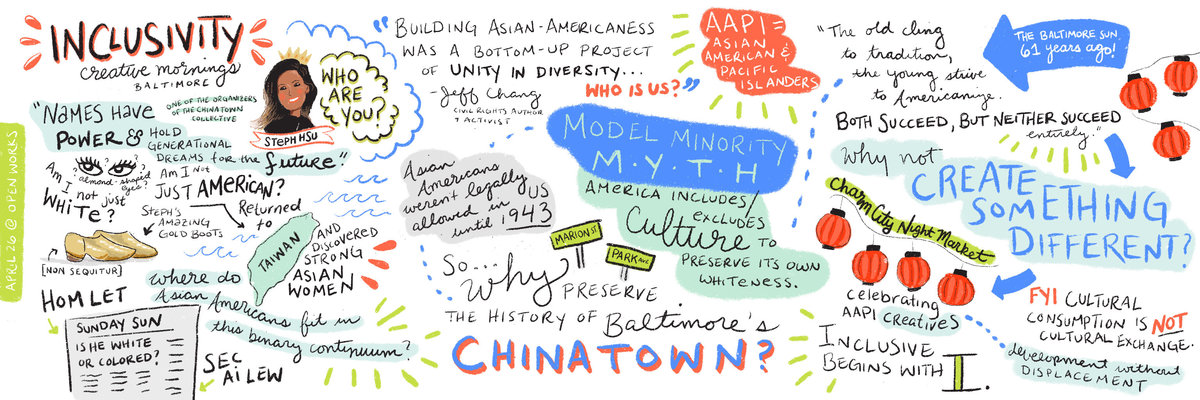 INCLUSIVITY
creative mornings
BALTIMORE
"NAMES HAVE
POWER & HOLD
GENERATIONAL
DREAMS for the future"
ONE OF THE ORGANIZERS
OF THE CHINATOWN
COLLECTIVE
STEPH HSU
WHO
ARE
YOU?
APRIL 26 @ OPEN WORKS
? ? ?
almond-shaped
eyes?
AM I
not just
WHITE?
AM I NOT
JUST AMERICAN?
STEPH'S
AMAZING
GOLD BOOTS
[NON SEQUITUR]
Returned
to
TAIWAN
AND
DISCOVERED
STRONG
ASIAN
WOMEN
where do
Asian
Americans fit in
this binary continuum?
HOM LET
SUNDAY SUN
IS HE WHITE
OR COLORED?
SEC
Ai LEW
"BUILDING ASIAN-AMERICANESS
WAS A BOTTOM-UP PROJECT
OF UNITY IN DIVERSITY...
WHO IS US?"
-Jeff Chang
CIVIL RIGHTS AUTHOR
+ ACTIVIST
AAPI=
ASIAN
AMERICAN &
PACIFIC
ISLANDERS
Asian
Americans
weren't legally
allowed in US
until 1943
MODEL MINORITY
M·Y·T·H
AMERICA INCLUDES/
EXCLUDES
Culture TO
PRESERVE ITS OWN
WHITENESS.
MARION ST
PARK AVE
So...
why PRESERVE
THE HISTORY OF Baltimore's
CHINATOWN?
"The old cling
to tradition,
the young strive
to Americanize.
BOTH SUCCEED, BUT NEITHER SUCCEED
entirely."
THE BALTIMORE SUN
61 YEARS AGO!
why not
CREATE
SOMETHING
DIFFERENT?
Charm City Night Market
celebrating
AAPI creatives
INCLUSIVE
BEGINS WITH I.
FYI CULTURAL
CONSUMPTION IS NOT
CULTURAL EXCHANGE.
development without
DISPLACEMENT